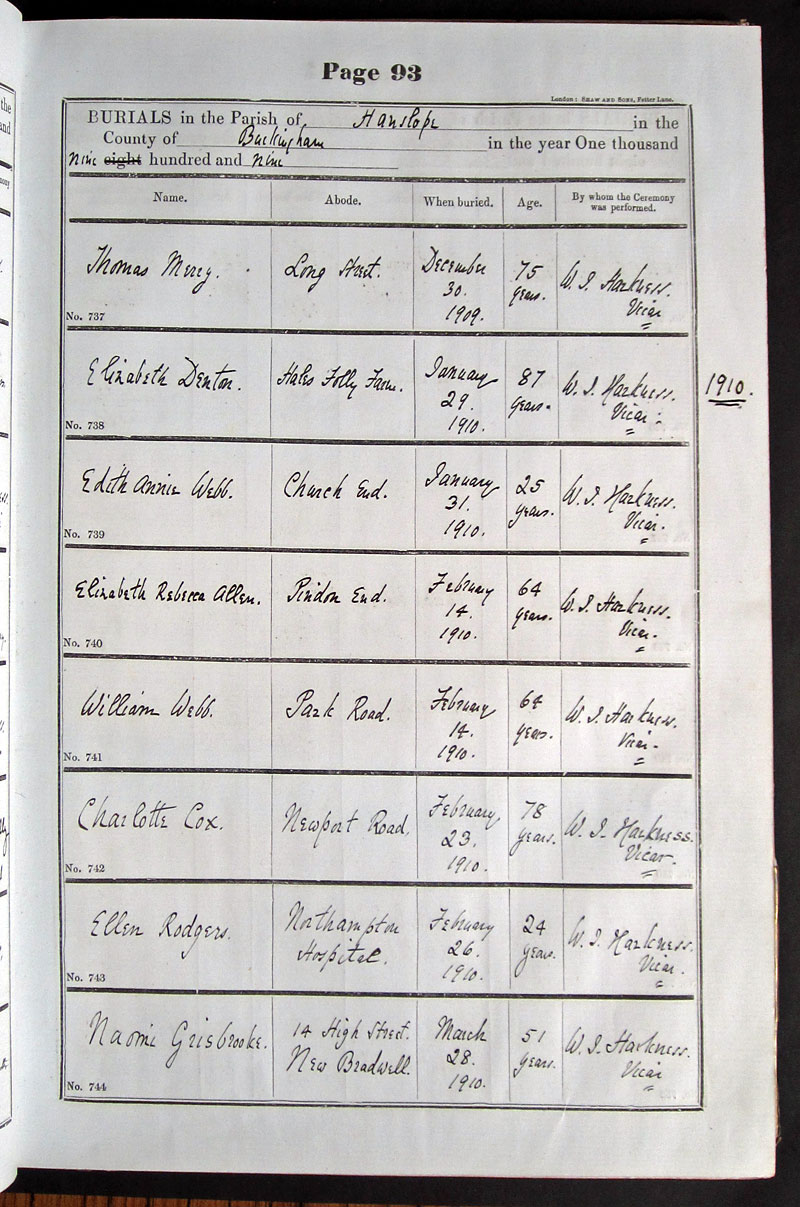 Page 93
London: SHAW AND SONS, Fetter Lane.
BURIALS in the Parish of Hanslope in the
County of Buckingham in the year One thousand
Nine eight hundred and Nine
Name. Abode. When buried. Age. By whom the Ceremony was performed.
Thomas Mercy. Long Street. December 30. 1909. 75 years. W. J. Harkness. Vicar
No. 737
Elizabeth Denton. Hales Folly Farm. January 29. 1910. 87 years. W. J. Harkness. Vicar.
1910.
No. 738
Edith Annie Webb. Church End. January 31. 1910. 25 years. W. J. Harkness. Vicar.
No. 739
Elizabeth Rebecca Allen. Pindon End. February 14. 1910. 64 years. W. J. Harkness. Vicar.
No. 740
William Webb. Park Road. February 14. 1910. 64 years. W. J. Harkness. Vicar.
No. 741
Charlotte Cox. Newport Road. February 23. 1910. 78 years. W. J. Harkness. Vicar.
No. 742
Ellen Rodgers. Northampton Hospital. February 26. 1910. 24 years. W. J. Harkness. Vicar.
No. 743
Naomi Grisbrooke. 14 High Street. New Bradwell. March 28. 1910. 51 years. W. J. Harkness. Vicar
No. 744